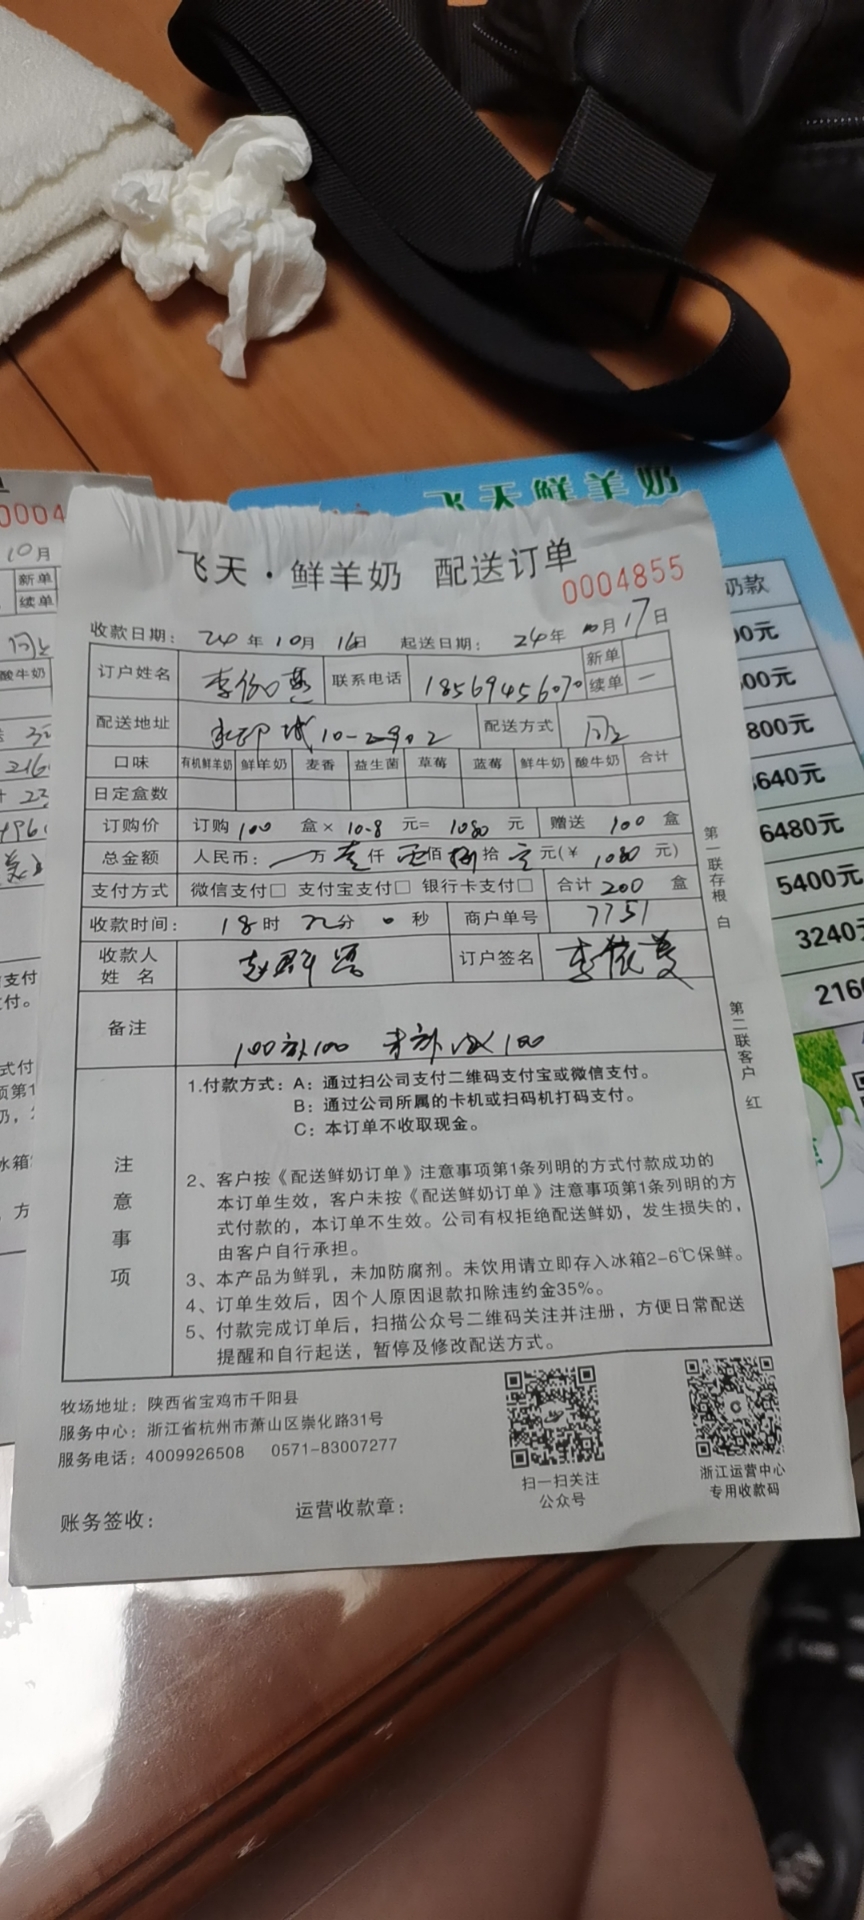 飞天鲜羊奶
0004
10月
新单
续单
酸牛奶
奶款
00元
800元
3640元
6480元
5400元
3240元
2160
飞天·鲜羊奶 配送订单
0004855
收款日期: 24年10月16日 起送日期: 24年10月17日
订户姓名 联系电话 18569456070 新单
续单 一
配送地址 10-2902 配送方式
口味 有机鲜羊奶 鲜羊奶 麦香 益生菌 草莓 蓝莓 鲜牛奶 酸牛奶 合计
日定盒数
订购价 订购 100 盒× 10.8 元= 1080 元 赠送 100 盒
总金额 人民币: 一万壹仟零佰捌拾零元(¥ 1080 元)
支付方式 微信支付□ 支付宝支付□ 银行卡支付□ 合计 200 盒
收款时间: 18时22分0秒 商户单号 7751
收款人
姓 名 订户签名
备注 100 100 100
注意事项
1.付款方式: A: 通过扫公司支付二维码支付宝或微信支付。
B: 通过公司所属的卡机或扫码机打码支付。
C: 本订单不收取现金。
2、客户按《配送鲜奶订单》注意事项第1条列明的方式付款成功的
本订单生效，客户未按《配送鲜奶订单》注意事项第1条列明的方
式付款的，本订单不生效。公司有权拒绝配送鲜奶，发生损失的，
由客户自行承担。
3、本产品为鲜乳，未加防腐剂。未饮用请立即存入冰箱2-6℃保鲜。
4、订单生效后，因个人原因退款扣除违约金35%。
5、付款完成订单后，扫描公众号二维码关注并注册，方便日常配送
提醒和自行起送，暂停及修改配送方式。
第一联存根 白
第二联客户 红
牧场地址: 陕西省宝鸡市千阳县
服务中心: 浙江省杭州市萧山区崇化路31号
服务电话: 4009926508 0571-83007277
扫一扫关注
公众号
浙江运营中心
专用收款码
账务签收: 运营收款章: